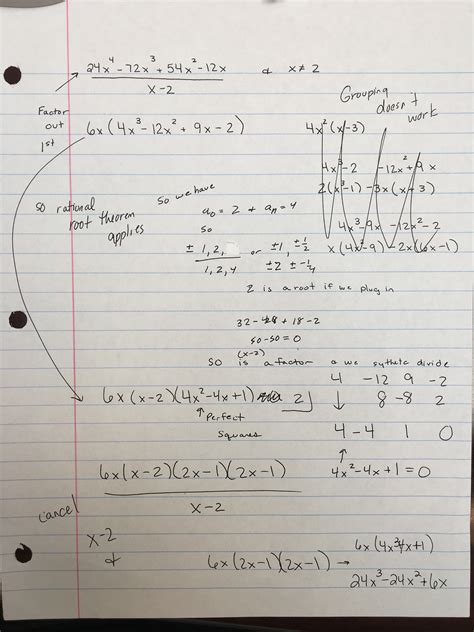 24x⁴ - 72x³ + 54x² - 12x & x ≠ 2
x - 2
Factor out 1st
6x (4x³ - 12x² + 9x - 2)
Grouping doesn't work
4x²(x-3)
4x³-2 -12x²+9x
2(x³-1) -3x(x+3)
4x³-9x -12x²-2
x(4x²-9) -2x(6x-1)
so rational root theorem applies
So we have
a₀ = 2 + aₙ = 4
so
± 1, 2, or ±1, ±½
1, 2, 4 ±2 ±-¼
2 is a root if we plug in
32 - 48 + 18 - 2
50-50 = 0
so (x-2) is a factor & we sythetc divide
6x (x-2)(4x²-4x+1)
2⌋ 4 -12 9 -2
↓ 8 -8 2
4 -4 1 0
↑ Perfect Squares
↑
4x²-4x+1=0
6x(x-2)(2x-1)(2x-1)
x-2
cancel
x-2
&
6x(2x-1)(2x-1) →
6x(4x²4x+1)
24x³-24x²+6x